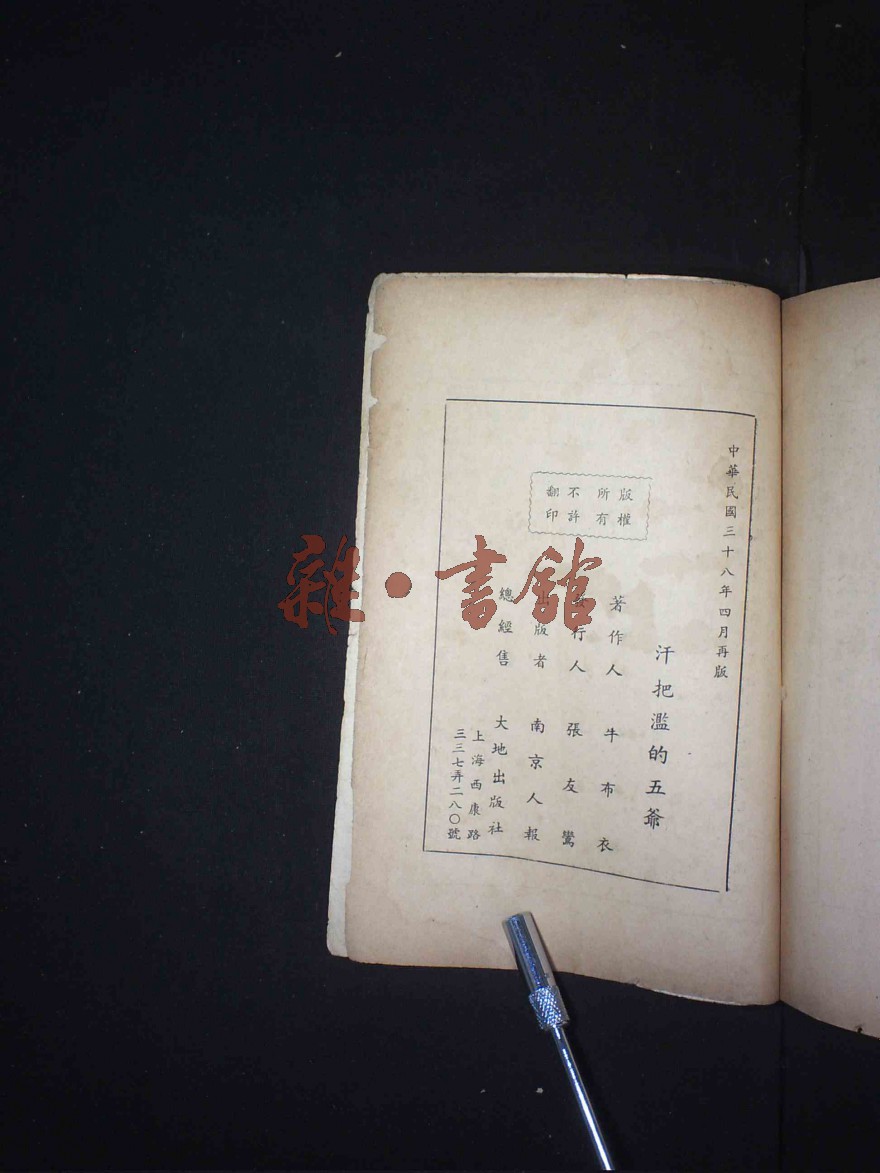 中華民國三十八年四月再版
汗把濫的五爺
版權所有
不許翻印
著作人 牛布衣
發行人 張友鸞
出版者 南京人報
總經售 大地出版社
上海西康路
三三七弄二八〇號
雜·書館